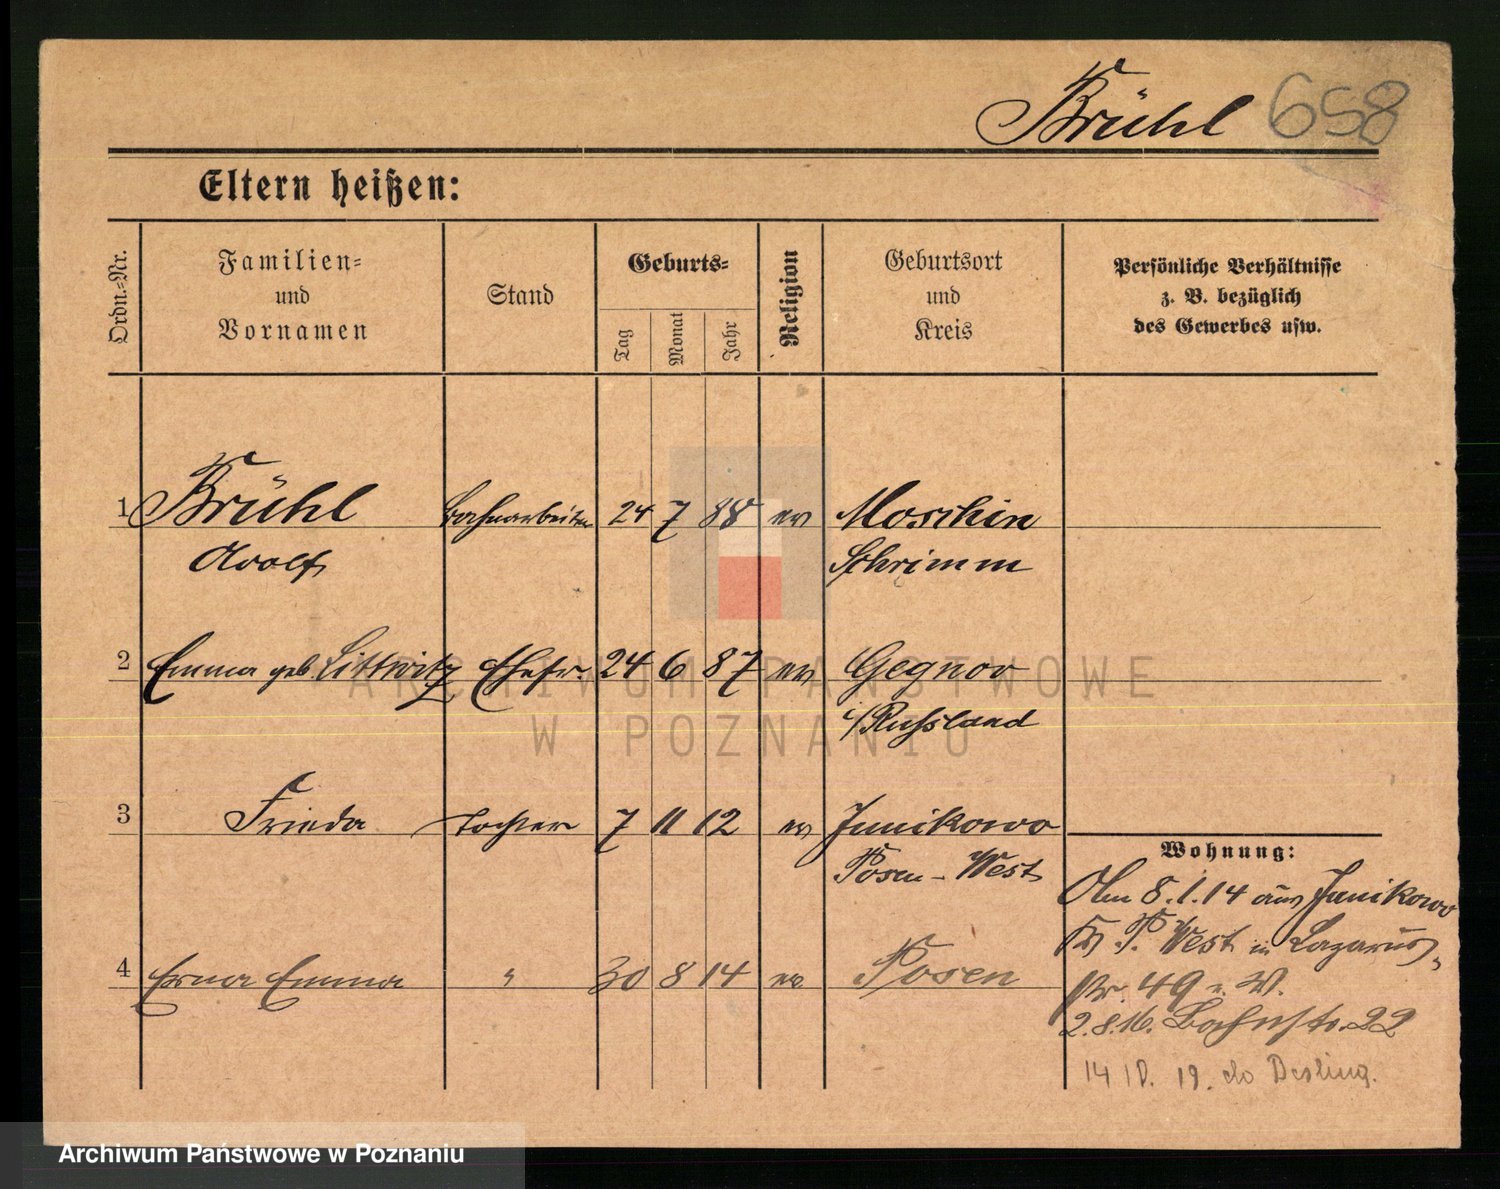 Brühl 658
Eltern heißen:
Ordn.-Nr.
Familien-
und
Vornamen
Stand
Geburts-
Tag
Monat
Jahr
Religion
Geburtsort
und
Kreis
Persönliche Verhältnisse
z. B. bezüglich
des Gewerbes usw.
1 Brühl Bahnarbeiter 24 7 88 ev Moschin
Adolf Schrimm
2 Emma geb. Littwitz Ehefr. 24 6 87 ev Gegnov
i/Russland
3 Frieda Tochter 7 11 12 ev Junikowo
Posen-West
4 Erna Emma " 30 8 14 ev Posen
Wohnung:
Am 8.1.14 aus Junikowo
Kr P. West in Lazarus-
str. 49 v. W.
2.8.16. Bahnstr. 22
14 10. 19.
ARCHIWUM PAŃSTWOWE
W POZNANIU
Archiwum Państwowe w Poznaniu